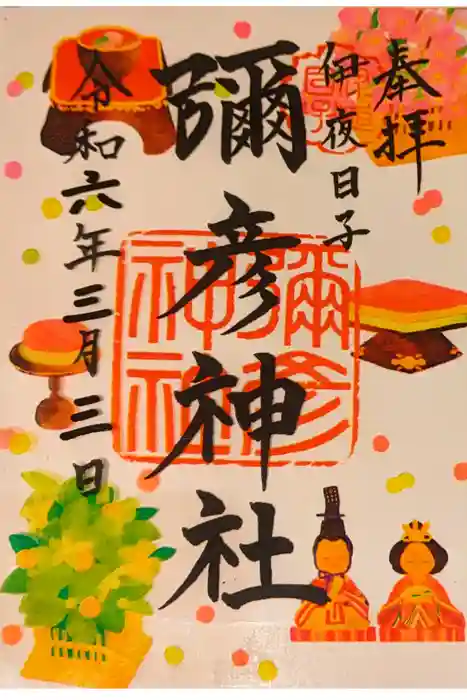 奉拝
伊夜日子
彌彦神社
令和六年三月三日
彌彦
神社